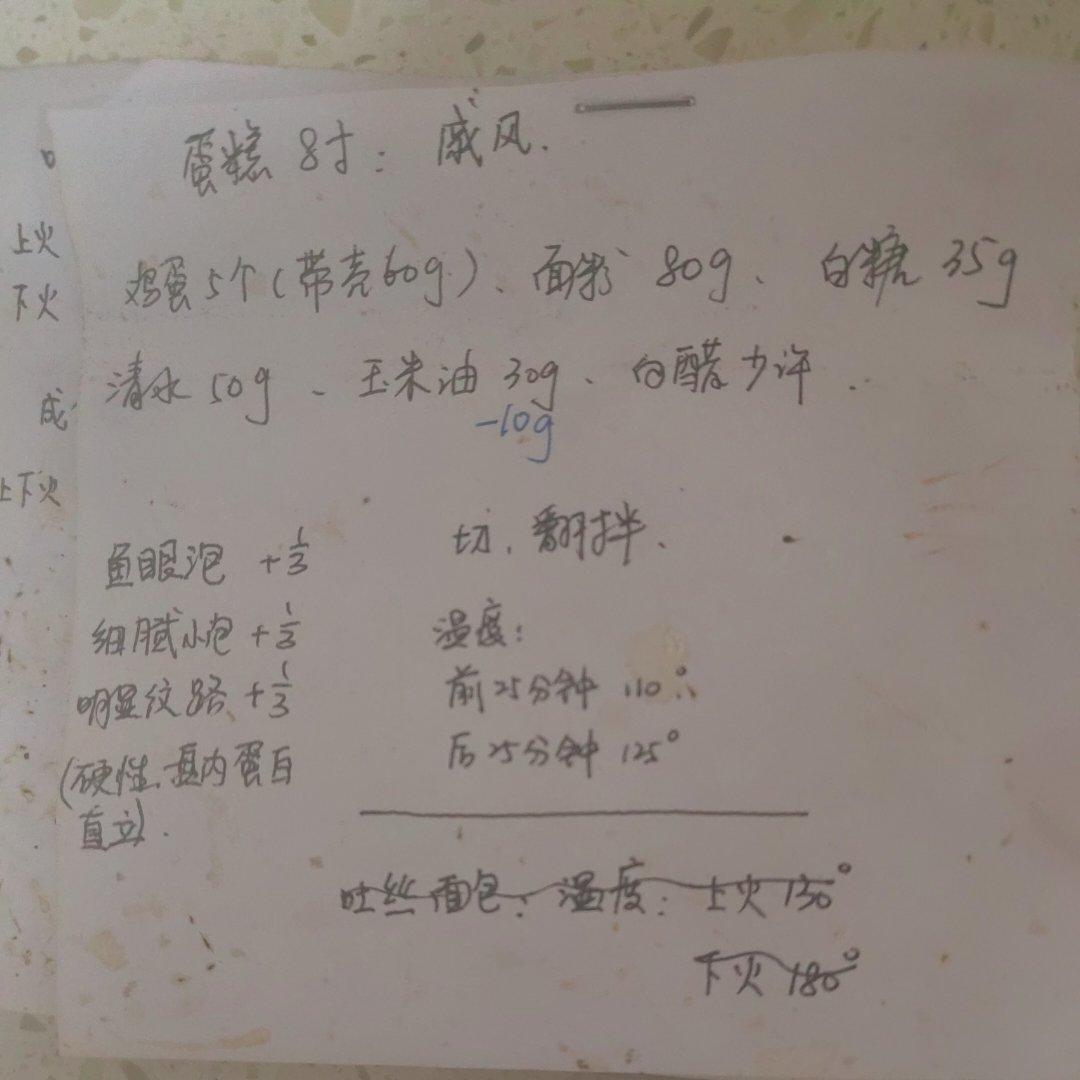 蛋糕 8寸：戚风.
鸡蛋5个(带壳60g)、面粉 80g、白糖 35g
清水 50g、玉米油 30g、白醋少许.
-10g
鱼眼泡 +1/3
细腻小泡 +1/3
明显纹路 +1/3
(硬性.盆内蛋白
直立).
切、翻拌.
温度：
前25分钟 110°
后25分钟 125°
吐丝面包：温度：上火 130°
下火 180°
上火
下火
成
上下火